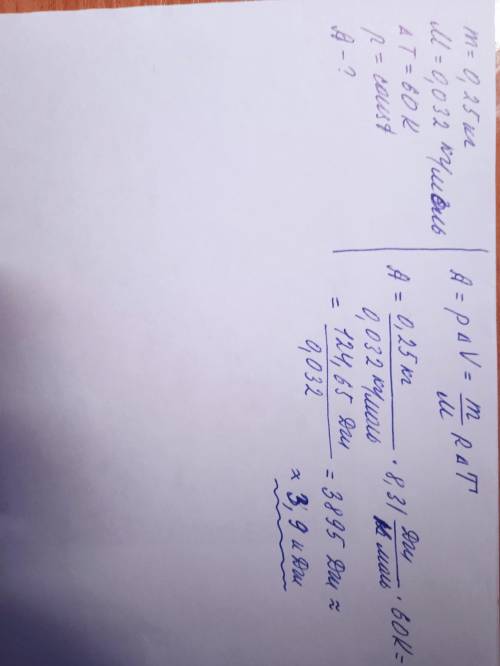 m = 0,25 кг
M = 0,032 кг/моль
ΔT = 60 К
p = const
A - ?
A = pΔV = m/M RΔT
A = 0,25 кг / 0,032 кг/моль · 8,31 Дж / К моль · 60К =
= 124,65 Дж / 0,032 = 3895 Дж ≈
≈ 3,9 кДж